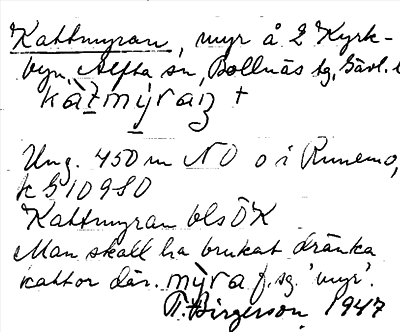 Kattmyran, myr å 2 Kyrk-
byn, Alfta sn, Bollnäs tg, Gävl. l
kàtmýran +
Ung. 450 m NO o i Runemo,
k G 10980
Kattmyran bls ÖK
Man skall ha brukat dränka
kattor där. mỳra f. sg. 'myr'.
T. Birgerson 1947